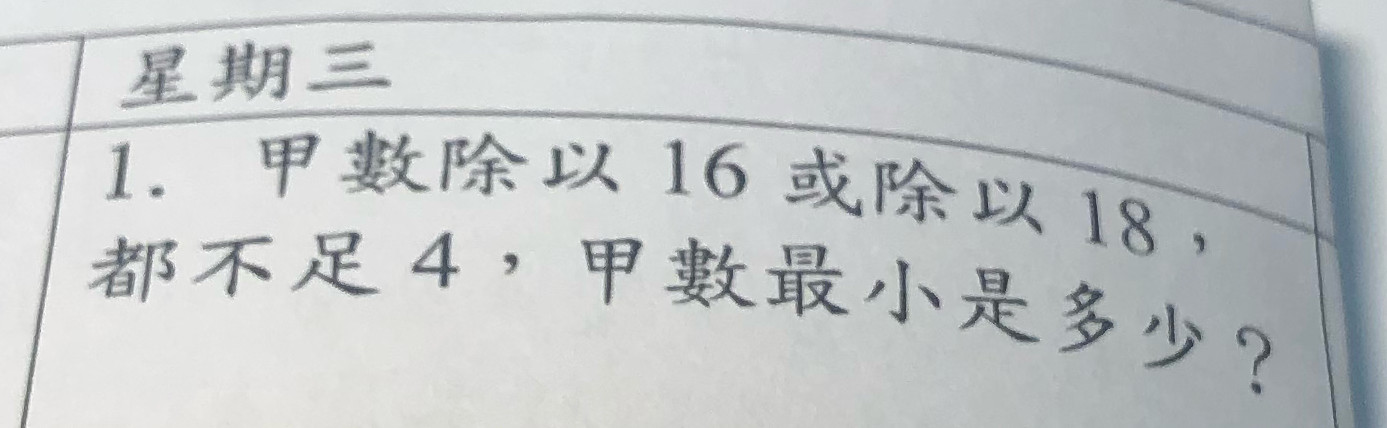 星期三
1. 甲數除以 16 或除以 18，
都不足 4，甲數最小是多少？